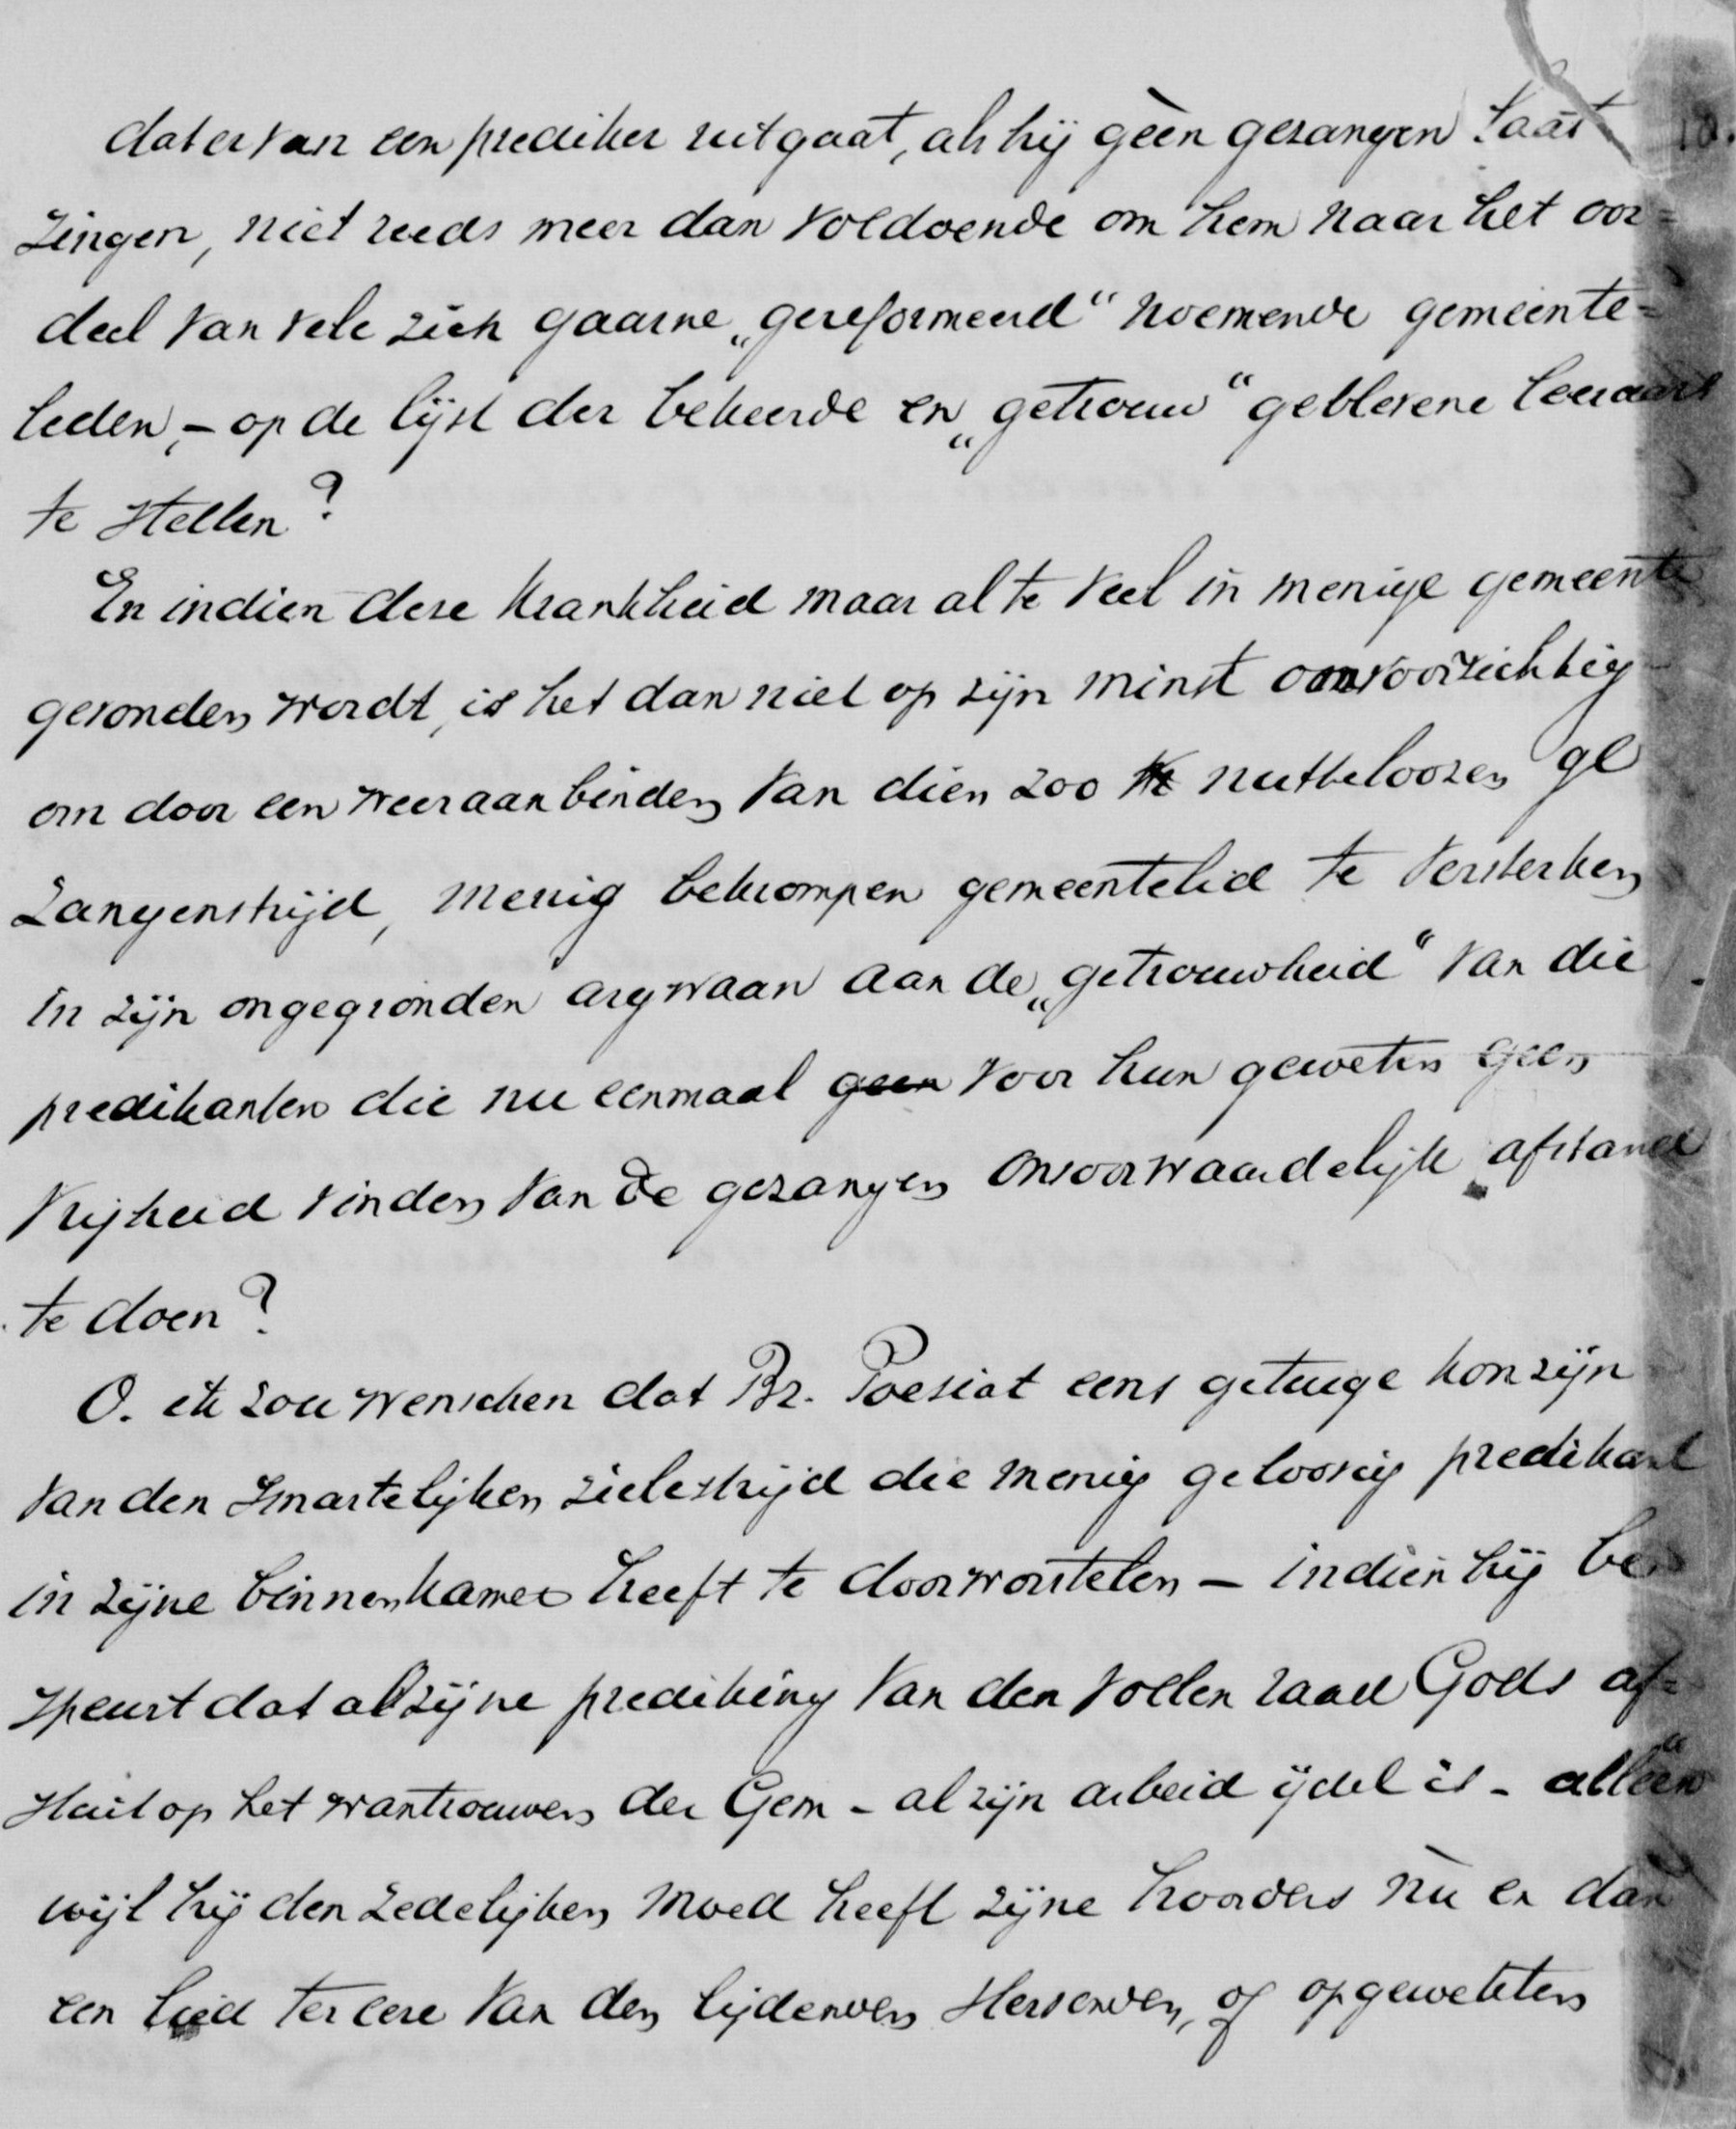 dat er van een prediker uitgaat, als hij géèn gezangen laat
zingen, niet reeds meer dan voldoende om hem naar het oor=
deel van vele zich gaarne „gereformeerd“ noemende gemeente=
leden, – op de lijst der bekeerde en „getrouw“ geblevene leeraars
te stellen?
En indien deze krankheid maar al te veel in menige gemeente
gevonden wordt, is het dan niet op zijn minst onvoorzichtig
om door een weer aanbinden van dien zoo nutteloozen ge
zangenstrijd, menig bekrompen gemeentelid te versterken
in zijn ongegronden argwaan aan de „getrouwheid“ van die
predikanten die nu eenmaal geen voor hun geweten geen
vrijheid vinden van de gezangen onvoorwaardelijk afstand
te doen?
O. ik zou wenschen dat Br. Poesiat eens getuige kon zijn
van den smartelijken zielestrijd die menig geloovig predikant
in zijne binnenkamer heeft te doorworstelen – indien hij be
speurt dat al zijne prediking van den vollen raad Gods af=
stuit op het wantrouwen der Gem – al zijn arbeid ijdel is – alléén
wijl hij den zedelijken moed heeft zijne hoorders nù en dàn
een lied ter eere van den lijdenden, stervenden, of opgewekten